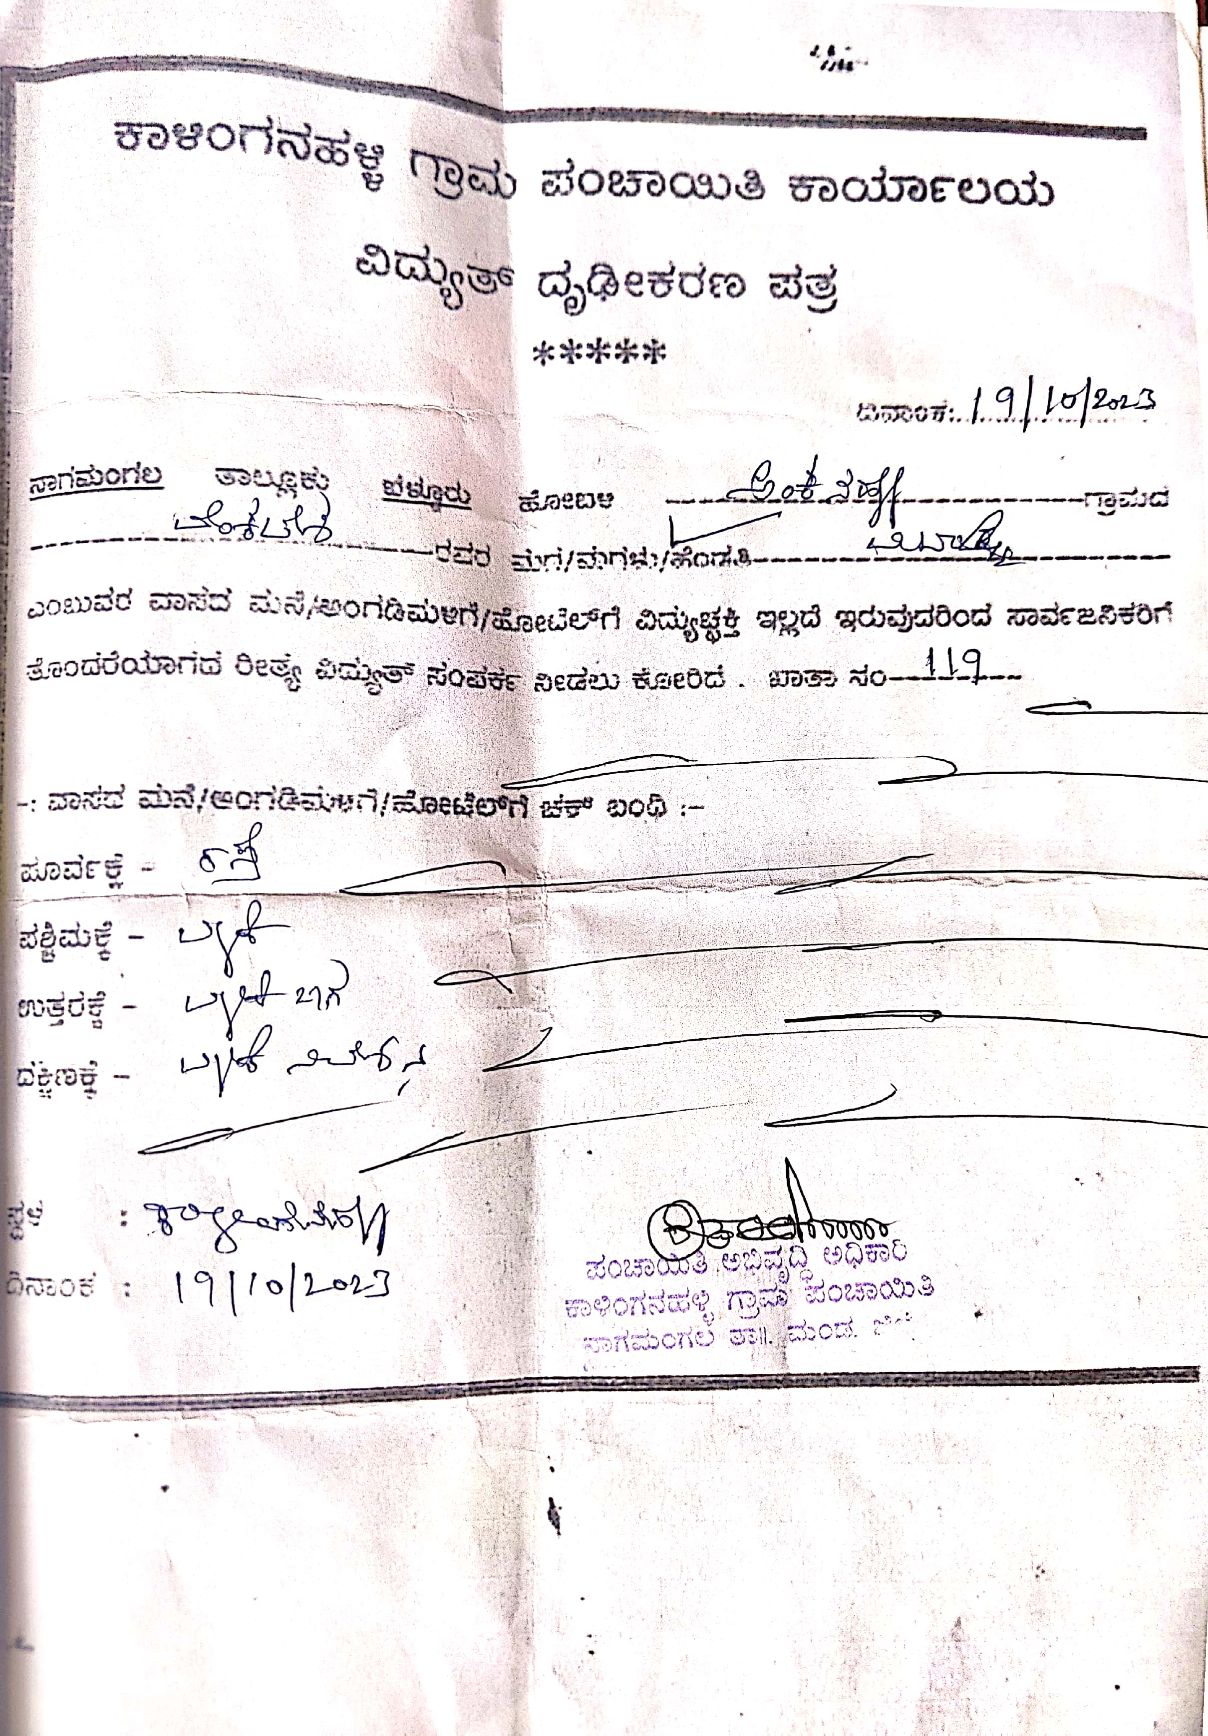 ಕಾಳಿಂಗನಹಳ್ಳಿ ಗ್ರಾಮ ಪಂಚಾಯಿತಿ ಕಾರ್ಯಾಲಯ
ವಿದ್ಯುತ್ ದೃಢೀಕರಣ ಪತ್ರ
*****
ದಿನಾಂಕ: 19/10/2023
ನಾಗಮಂಗಲ ತಾಲ್ಲೂಕು ಬೆಳ್ಳೂರು ಹೋಬಳಿ ಗ್ರಾಮದ
ವೆಂಕಟೇಶ ರವರ ಮಗ/ಮಗಳು/ಹೆಂಡತಿ
ಎಂಬುವರ ವಾಸದ ಮನೆ/ಅಂಗಡಿಮಳಿಗೆ/ಹೋಟೆಲ್‌ಗೆ ವಿದ್ಯುಚ್ಛಕ್ತಿ ಇಲ್ಲದೆ ಇರುವುದರಿಂದ ಸಾರ್ವಜನಿಕರಿಗೆ
ತೊಂದರೆಯಾಗದ ರೀತ್ಯ ವಿದ್ಯುತ್ ಸಂಪರ್ಕ ನೀಡಲು ಕೋರಿದೆ . ಖಾತಾ ಸಂ 119
-: ವಾಸದ ಮನೆ/ಅಂಗಡಿಮಳಿಗೆ/ಹೋಟೆಲ್‌ಗೆ ಚಕ್ ಬಂಧಿ :-
ಪೂರ್ವಕ್ಕೆ - ರಸ್ತೆ
ಪಶ್ಚಿಮಕ್ಕೆ -
ಉತ್ತರಕ್ಕೆ -
ದಕ್ಷಿಣಕ್ಕೆ -
ಸ್ಥಳ :
ದಿನಾಂಕ : 19/10/2023
ಪಂಚಾಯಿತಿ ಅಭಿವೃದ್ಧಿ ಅಧಿಕಾರಿ
ಕಾಳಿಂಗನಹಳ್ಳಿ ಗ್ರಾಮ ಪಂಚಾಯಿತಿ
ನಾಗಮಂಗಲ ತಾ||. ಮಂಡ್ಯ